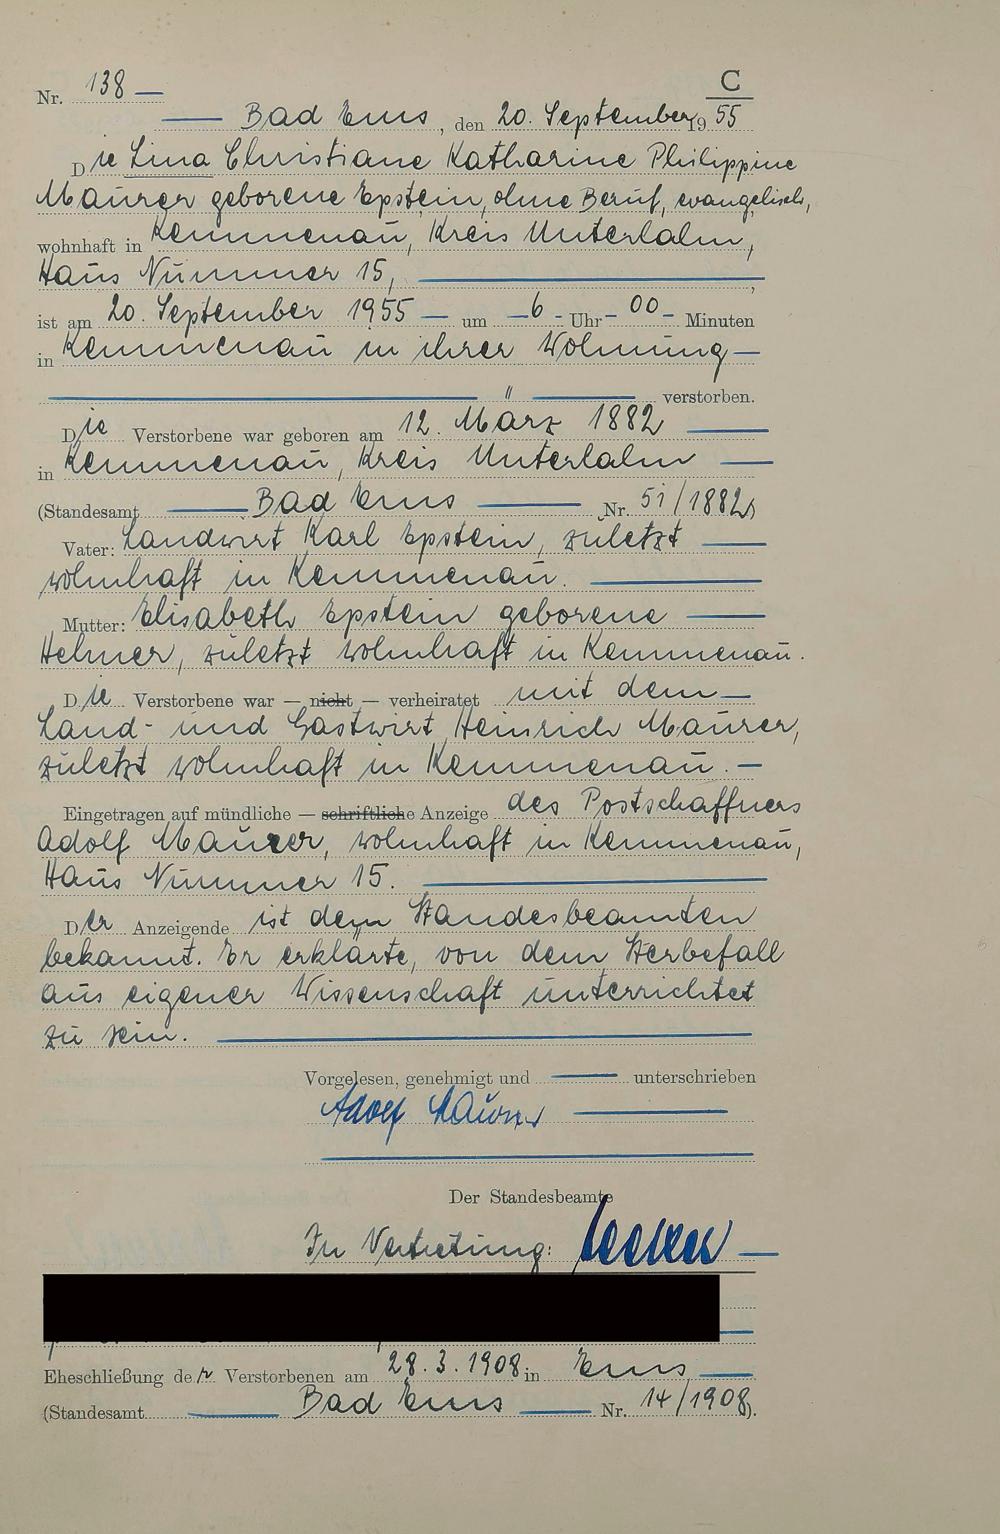 C
Nr. 138 —
— Bad Ems, den 20. September 1955
Die Lina Christiane Katharine Philippine
Maurer geborene Epstein, ohne Beruf, evangelisch,
wohnhaft in Kemmenau, Kreis Unterlahn,
Haus Nummer 15,
ist am 20. September 1955 — um — 6 - Uhr - 00 - Minuten
in Kemmenau in ihrer Wohnung —
" verstorben.
Die Verstorbene war geboren am 12. März 1882
in Kemmenau, Kreis Unterlahn
(Standesamt Bad Ems Nr. 51/1882)
Vater: Landwirt Karl Epstein, zuletzt
wohnhaft in Kemmenau.
Mutter: Elisabeth Epstein geborene
Helmer, zuletzt wohnhaft in Kemmenau.
Die Verstorbene war — nicht — verheiratet mit dem
Land- und Gastwirt Heinrich Maurer,
zuletzt wohnhaft in Kemmenau. —
Eingetragen auf mündliche — schriftliche Anzeige des Postschaffners
Adolf Maurer, wohnhaft in Kemmenau,
Haus Nummer 15.
Der Anzeigende ist dem Standesbeamten
bekannt. Er erklärte, von dem Sterbefall
aus eigener Wissenschaft unterrichtet
zu sein.
Vorgelesen, genehmigt und unterschrieben
Adolf Maurer
Der Standesbeamte
In Vertretung:
Eheschließung der Verstorbenen am 28.3.1908 in Ems
(Standesamt Bad Ems Nr. 14/1908).